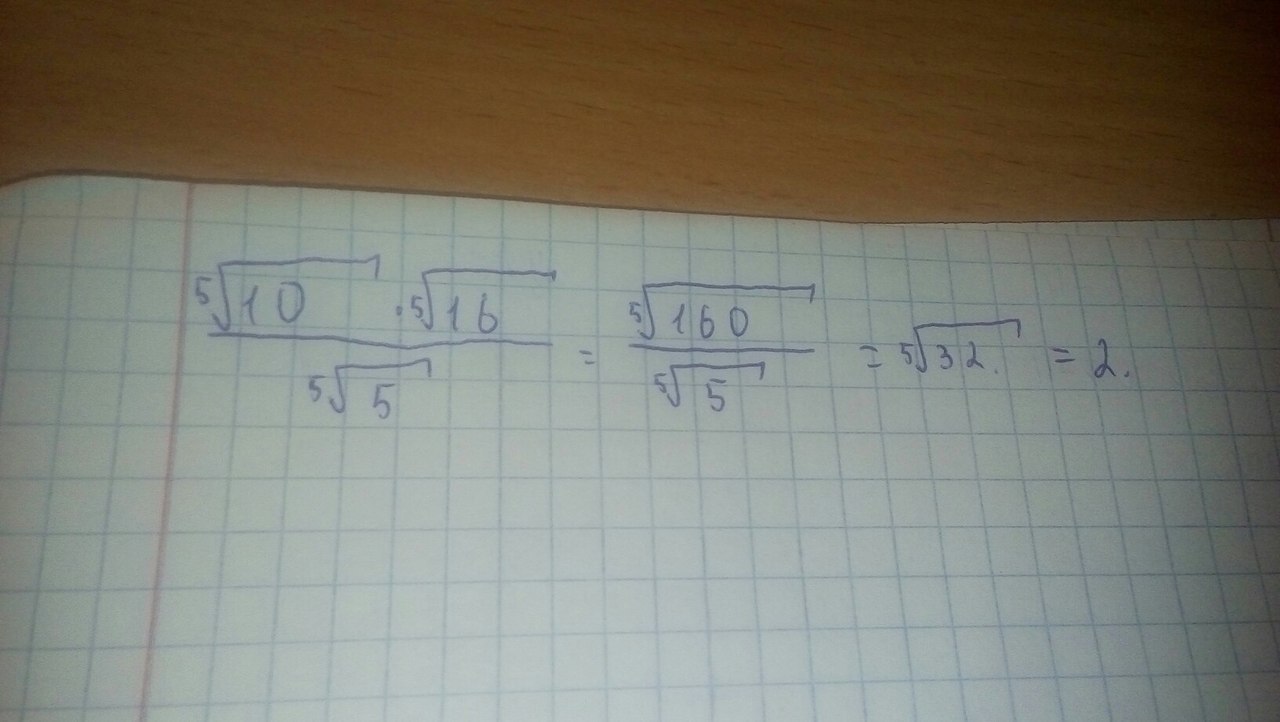 \frac{\sqrt[5]{10} \cdot \sqrt[5]{16}}{\sqrt[5]{5}} = \frac{\sqrt[5]{160}}{\sqrt[5]{5}} = \sqrt[5]{32} = 2.